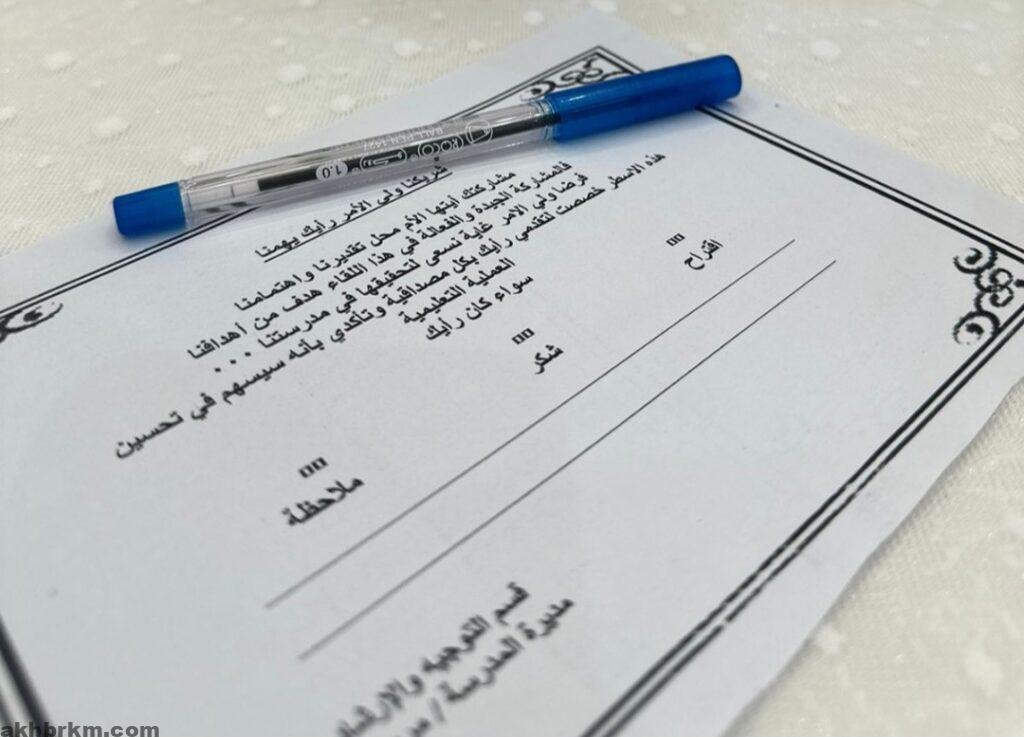 BALL PEN 1427
ROCO
1.0
شريكنا ولي الأمر رأيك يهمنا
مشاركتك ايتها الأم محل تقديرنا واهتمامنا
فالمشاركة الجيدة والفعالة في هذا اللقاء هدف من أهدافنا
فرضا ولي الامر غاية نسعى لتحقيقها في مدرستنا ...
هذه الاسطر خصصت لتقدمي رأيك بكل مصداقية وتأكدي بأنه سيسهم في تحسين
العملية التعليمية
سواء كان رأيك
اقتراح شكر ملاحظة
قسم التوجيه والإرشاد
مديرة المدرسة /
akhbrkm.com